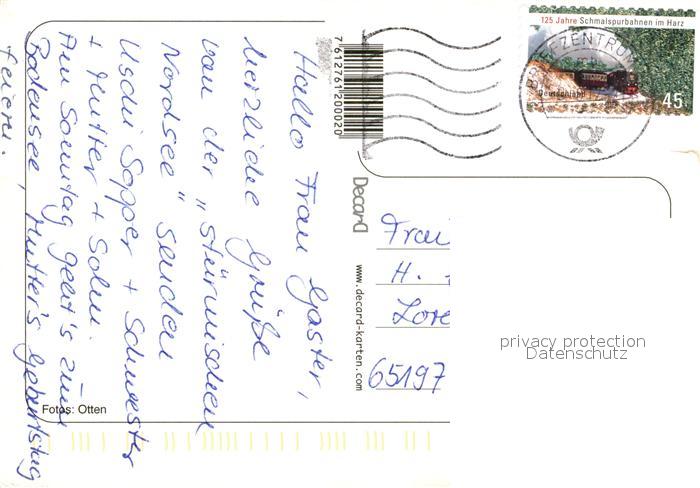 Hallo Frau Gaster,
herzliche Grüße
von der "stürmischen
Nordsee" senden
Uschi Sapper + Schwester
+ Mutter + Sohn.
Am Sonntag geht's zum
Bodensee, Mutter's Geburtstag
feiern.
Fotos: Otten
7612761200020
Decard
www.decard-karten.com
125 Jahre Schmalspurbahnen im Harz
Deutschland
45
BRIEFZENTRUM
Frau
H.
Lore
65197
privacy protection
Datenschutz